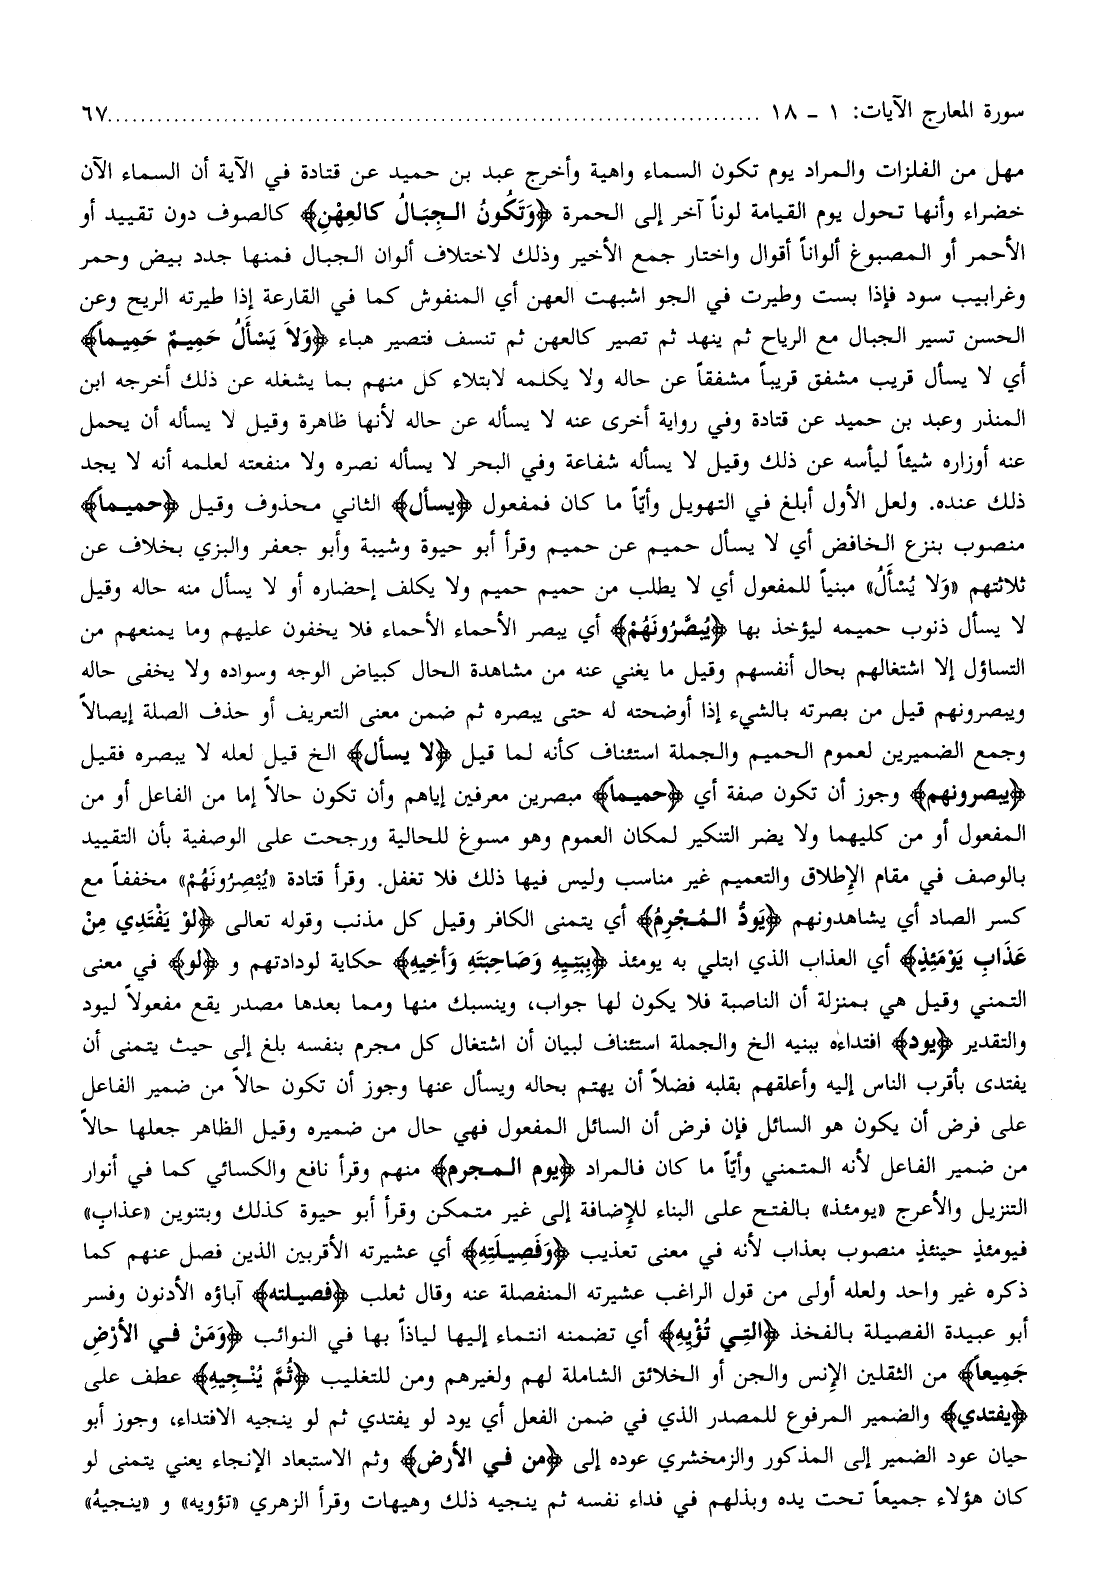 سورة المعارج الآيات: ١ - ١٨ ........................................................................ ٦٧
مهل من الفلزات والمراد يوم تكون السماء واهية وأخرج عبد بن حميد عن قتادة في الآية أن السماء الآن
خضراء وأنها تحول يوم القيامة لوناً آخر إلى الحمرة ﴿وَتَكُونُ الجِبَالُ كالعِهْنِ﴾ كالصوف دون تقييد أو
الأحمر أو المصبوغ ألواناً أقوال واختار جمع الأخير وذلك لاختلاف ألوان الجبال فمنها جدد بيض وحمر
وغرابيب سود فإذا بست وطيرت في الجو اشبهت العهن أي المنفوش كما في القارعة إذا طيرته الريح وعن
الحسن تسير الجبال مع الرياح ثم ينهد ثم تصير كالعهن ثم تنسف فتصير هباء ﴿وَلاَ يَسْأَلُ حَمِيمٌ حَمِيماً﴾
أي لا يسأل قريب مشفق قريباً مشفقاً عن حاله ولا يكلمه لابتلاء كل منهم بما يشغله عن ذلك أخرجه ابن
المنذر وعبد بن حميد عن قتادة وفي رواية أخرى عنه لا يسأله عن حاله لأنها ظاهرة وقيل لا يسأله أن يحمل
عنه أوزاره شيئاً ليأسه عن ذلك وقيل لا يسأله شفاعة وفي البحر لا يسأله نصره ولا منفعته لعلمه أنه لا يجد
ذلك عنده. ولعل الأول أبلغ في التهويل وأيّاً ما كان فمفعول ﴿يسأل﴾ الثاني محذوف وقيل ﴿حميماً﴾
منصوب بنزع الخافض أي لا يسأل حميم عن حميم وقرأ أبو حيوة وشيبة وأبو جعفر والبزي بخلاف عن
ثلاثتهم «وَلا يُسْأَلُ» مبنياً للمفعول أي لا يطلب من حميم حميم ولا يكلف إحضاره أو لا يسأل منه حاله وقيل
لا يسأل ذنوب حميمه ليؤخذ بها ﴿يُبصَّرُونَهُمْ﴾ أي يبصر الأحماء الأحماء فلا يخفون عليهم وما يمنعهم من
التساؤل إلا اشتغالهم بحال أنفسهم وقيل ما يغني عنه من مشاهدة الحال كبياض الوجه وسواده ولا يخفى حاله
ويبصرونهم قيل من بصرته بالشيء إذا أوضحته له حتى يبصره ثم ضمن معنى التعريف أو حذف الصلة إيصالاً
وجمع الضميرين لعموم الحميم والجملة استئناف كأنه لما قيل ﴿لا يسأل﴾ الخ قيل لعله لا يبصره فقيل
﴿يبصرونهم﴾ وجوز أن تكون صفة أي ﴿حميماً﴾ مبصرين معرفين إياهم وأن تكون حالاً إما من الفاعل أو من
المفعول أو من كليهما ولا يضر التنكير لمكان العموم وهو مسوغ للحالية ورجحت على الوصفية بأن التقييد
بالوصف في مقام الإطلاق والتعميم غير مناسب وليس فيها ذلك فلا تغفل. وقرأ قتادة «يُبْصِرُونَهُمْ» مخففاً مع
كسر الصاد أي يشاهدونهم ﴿يَودُّ المُجْرِمُ﴾ أي يتمنى الكافر وقيل كل مذنب وقوله تعالى ﴿لوْ يَفْتَدِي مِنْ
عَذَابِ يَوْمَئِذٍ﴾ أي العذاب الذي ابتلي به يومئذ ﴿بِبَنِيهِ وَصَاحِبَتَهِ وَأخِيهِ﴾ حكاية لودادتهم و ﴿لو﴾ في معنى
التمني وقيل هي بمنزلة أن الناصبة فلا يكون لها جواب، وينسبك منها ومما بعدها مصدر يقع مفعولاً ليود
والتقدير ﴿يود﴾ افتداءه ببنيه الخ والجملة استئناف لبيان أن اشتغال كل مجرم بنفسه بلغ إلى حيث يتمنى أن
يفتدى بأقرب الناس إليه وأعلقهم بقلبه فضلاً أن يهتم بحاله ويسأل عنها وجوز أن تكون حالاً من ضمير الفاعل
على فرض أن يكون هو السائل فإن فرض أن السائل المفعول فهي حال من ضميره وقيل الظاهر جعلها حالاً
من ضمير الفاعل لأنه المتمني وأيّاً ما كان فالمراد ﴿يوم المجرم﴾ منهم وقرأ نافع والكسائي كما في أنوار
التنزيل والأعرج «يومئذ» بالفتح على البناء للإضافة إلى غير متمكن وقرأ أبو حيوة كذلك وبتنوين «عذاب»
فيومئذٍ حينئذٍ منصوب بعذاب لأنه في معنى تعذيب ﴿وَفَصِيلَتِهِ﴾ أي عشيرته الأقربين الذين فصل عنهم كما
ذكره غير واحد ولعله أولى من قول الراغب عشيرته المنفصلة عنه وقال ثعلب ﴿فصيلته﴾ آباؤه الأدنون وفسر
أبو عبيدة الفصيلة بالفخذ ﴿التِي تُؤْيِهِ﴾ أي تضمنه انتماء إليها لياذاً بها في النوائب ﴿وَمَنْ في الأرْضِ
جَمِيعاً﴾ من الثقلين الإنس والجن أو الخلائق الشاملة لهم ولغيرهم ومن للتغليب ﴿ثُمَّ يُنْجِيهِ﴾ عطف على
﴿يفتدي﴾ والضمير المرفوع للمصدر الذي في ضمن الفعل أي يود لو يفتدي ثم لو ينجيه الافتداء، وجوز أبو
حيان عود الضمير إلى المذكور والزمخشري عوده إلى ﴿من في الأرض﴾ وثم الاستبعاد الإنجاء يعني يتمنى لو
كان هؤلاء جميعاً تحت يده وبذلهم في فداء نفسه ثم ينجيه ذلك وهيهات وقرأ الزهري «تؤويه» و «ينجيهُ»